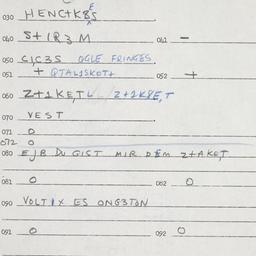 030 HENC+K8ES
040 S+1R3M 041 —
050 C,C3S OGLE FRINGES.
051 + QTAL1SKOT+ 052 +
060 Z+1KE,TL Z+1K8E,T
070 VEST
071 0
072 0
080 EJB DU GIST MIR DEM Z+AKET
081 0 082 0
090 VOLTIX ES ONG3TON
091 0 092 0